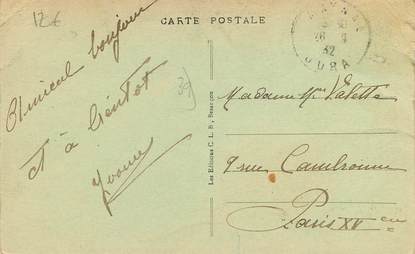 12€
CARTE POSTALE
32
JURA
Amical bonjour
et à bientôt
Yvonne
39
Les Editions C. L. B., Besançon
Madame Valette
9 rue Cambronne
Paris XV eme